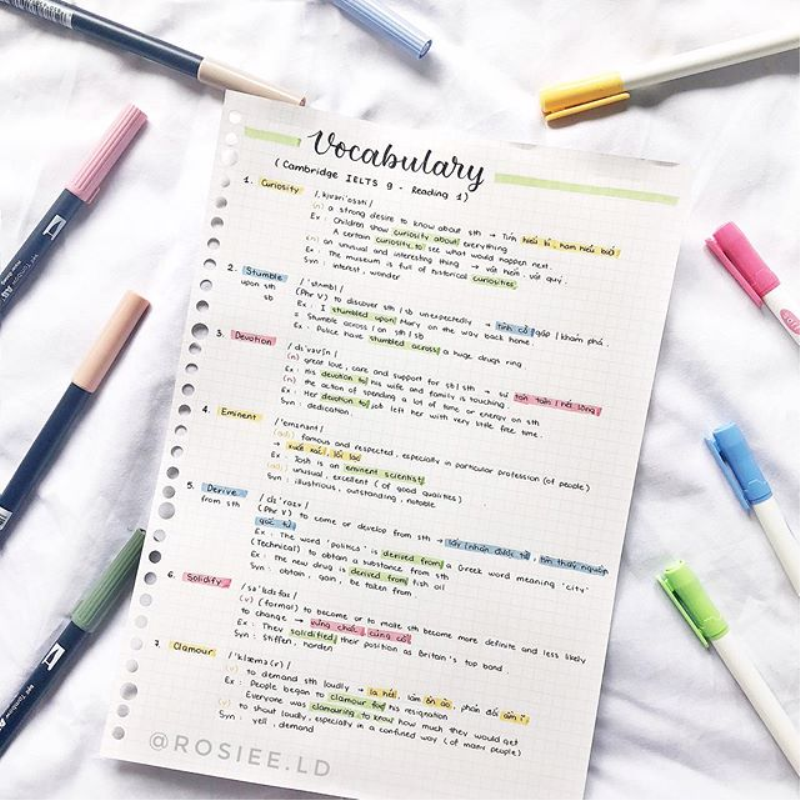 Vocabulary
(Cambridge IELTS 9 - Reading 1)
1. Curiosity /ˌkjʊəriˈɒsəti/
(n) a strong desire to know about sth → Tính hiếu kì, ham hiểu biết
Ex: Children show curiosity about everything
A certain curiosity to see what would happen next.
(n) an unusual and interesting thing → vật hiếm, vật quý.
Ex: The museum is full of historical curiosities
Syn: interest, wonder
2. Stumble /ˈstʌmbl/
upon sth (Phr V) to discover sth/sb unexpectedly → tình cờ gặp / khám phá.
sb Ex: I stumbled upon Mary on the way back home.
= Stumble across/on sth/sb
Ex: Police have stumbled across a huge drugs ring.
3. Devotion /dɪˈvəʊʃn/
(n) great love, care and support for sb/sth → sự tận tâm/hết lòng
Ex: His devotion to his wife and family is touching
(n) the action of spending a lot of time or energy on sth
Ex: Her devotion to job left her with very little free time.
Syn: dedication
4. Eminent /ˈemɪnənt/
(adj) famous and respected, especially in particular profession (of people)
→ xuất sắc, lỗi lạc
Ex: Josh is an eminent scientist
(adj) unusual, excellent (of good qualities)
Syn: illustrious, outstanding, notable
5. Derive /dɪˈraɪv/
from sth (Phr V) to come or develop from sth → lấy (nhận được từ), tìm thấy nguồn
gốc từ
Ex: The word 'politics' is derived from a Greek word meaning 'city'
(Technical) to obtain a substance from sth
Ex: The new drug is derived from fish oil
Syn: obtain, gain, be taken from.
6. Solidify /səˈlɪdɪfaɪ/
(v) (formal) to become or to make sth become more definite and less likely
to change → vững chắc, củng cố
Ex: They solidified their position as Britain's top band.
Syn: Stiffen, harden
7. Clamour /ˈklæmə(r)/
(v) to demand sth loudly → la hét, làm ồn ào, phản đối ầm ĩ
Ex: People began to clamour for his resignation
Everyone was clamouring to know how much they would get
(v) to shout loudly, especially in a confused way (of many people)
Syn: yell, demand
@ROSIEE.LD